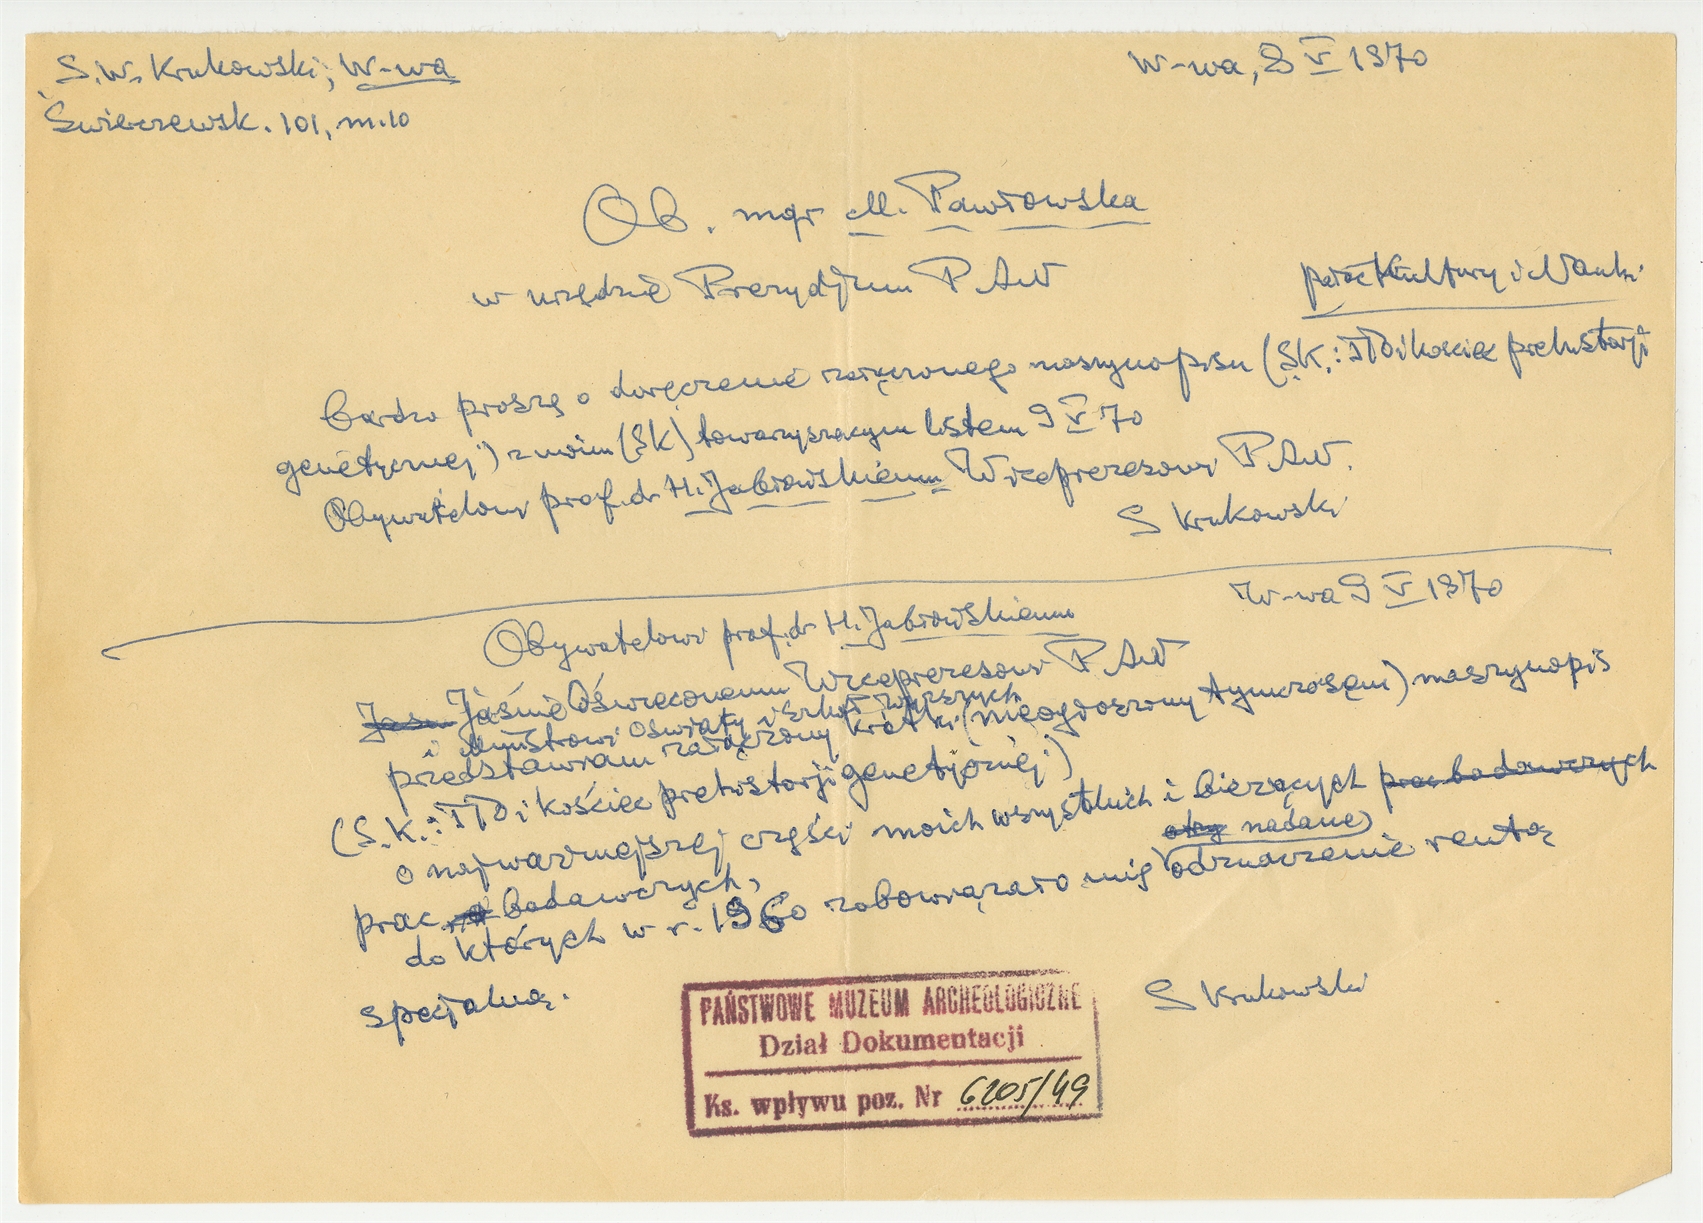 S.W. Krukowski, W-wa
Świerczewsk. 101, m.10
W-wa, 8 V 1970
Ob. mgr M. Pawłowska
w urzędzie Prezydjum PAN
pałac Kultury i Nauki
bardzo proszę o doręczenie załączonego maszynopisu (SK.: ITD i kościec prehistorji
genetycznej) z moim (SK) towarzyszącym listem 9 V 70
Obywatelowi prof. dr H. Jabłowskiemu Wiceprezesowi PAN.
S Krukowski
W-wa 9 V 1970
Obywatelowi prof. dr H. Jabłowskiemu
Jaśnie Oświeconemu Wiceprezesowi PAN
i Ministrowi Oświaty i szkół wyższych
przedstawiam załączony krótki (nieogłoszony tymczasem) maszynopis
(S.K.: ITD i kościec prehistorji genetycznej)
o najważniejszej części moich wszystkich i bieżących prac badawczych
prac badawczych,
nadane
do których w r. 1960 zobowiązało mię odznaczenie rentą
specjalną.
S Krukowski
PAŃSTWOWE MUZEUM ARCHEOLOGICZNE
Dział Dokumentacji
Ks. wpływu poz. Nr 6205/49